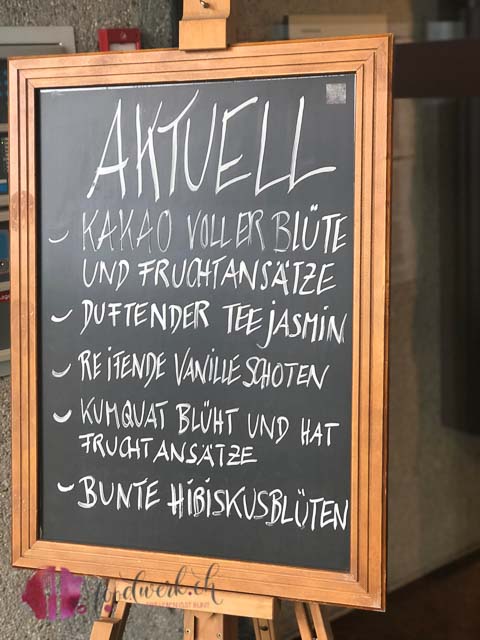 AKTUELL
- KAKAO VOLLER BLÜTE
UND FRUCHTANSÄTZE
- DUFTENDER TEEJASMIN
- REIFENDE VANILLESCHOTEN
- KUMQUAT BLÜHT UND HAT
FRUCHTANSÄTZE
- BUNTE HIBISKUSBLÜTEN
foodwerk.ch